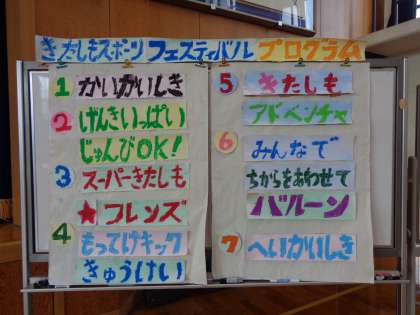 きたしもスポーツフェスティバル プログラム
1 かいかいしき
2 げんきいっぱい
じゅんびOK!
3 スーパーきたしも
★フレンズ
4 もってけキック
きゅうけい
5 きたしも
アドベンチャ
6 みんなで
ちからをあわせて
バルーン
7 へいかいしき